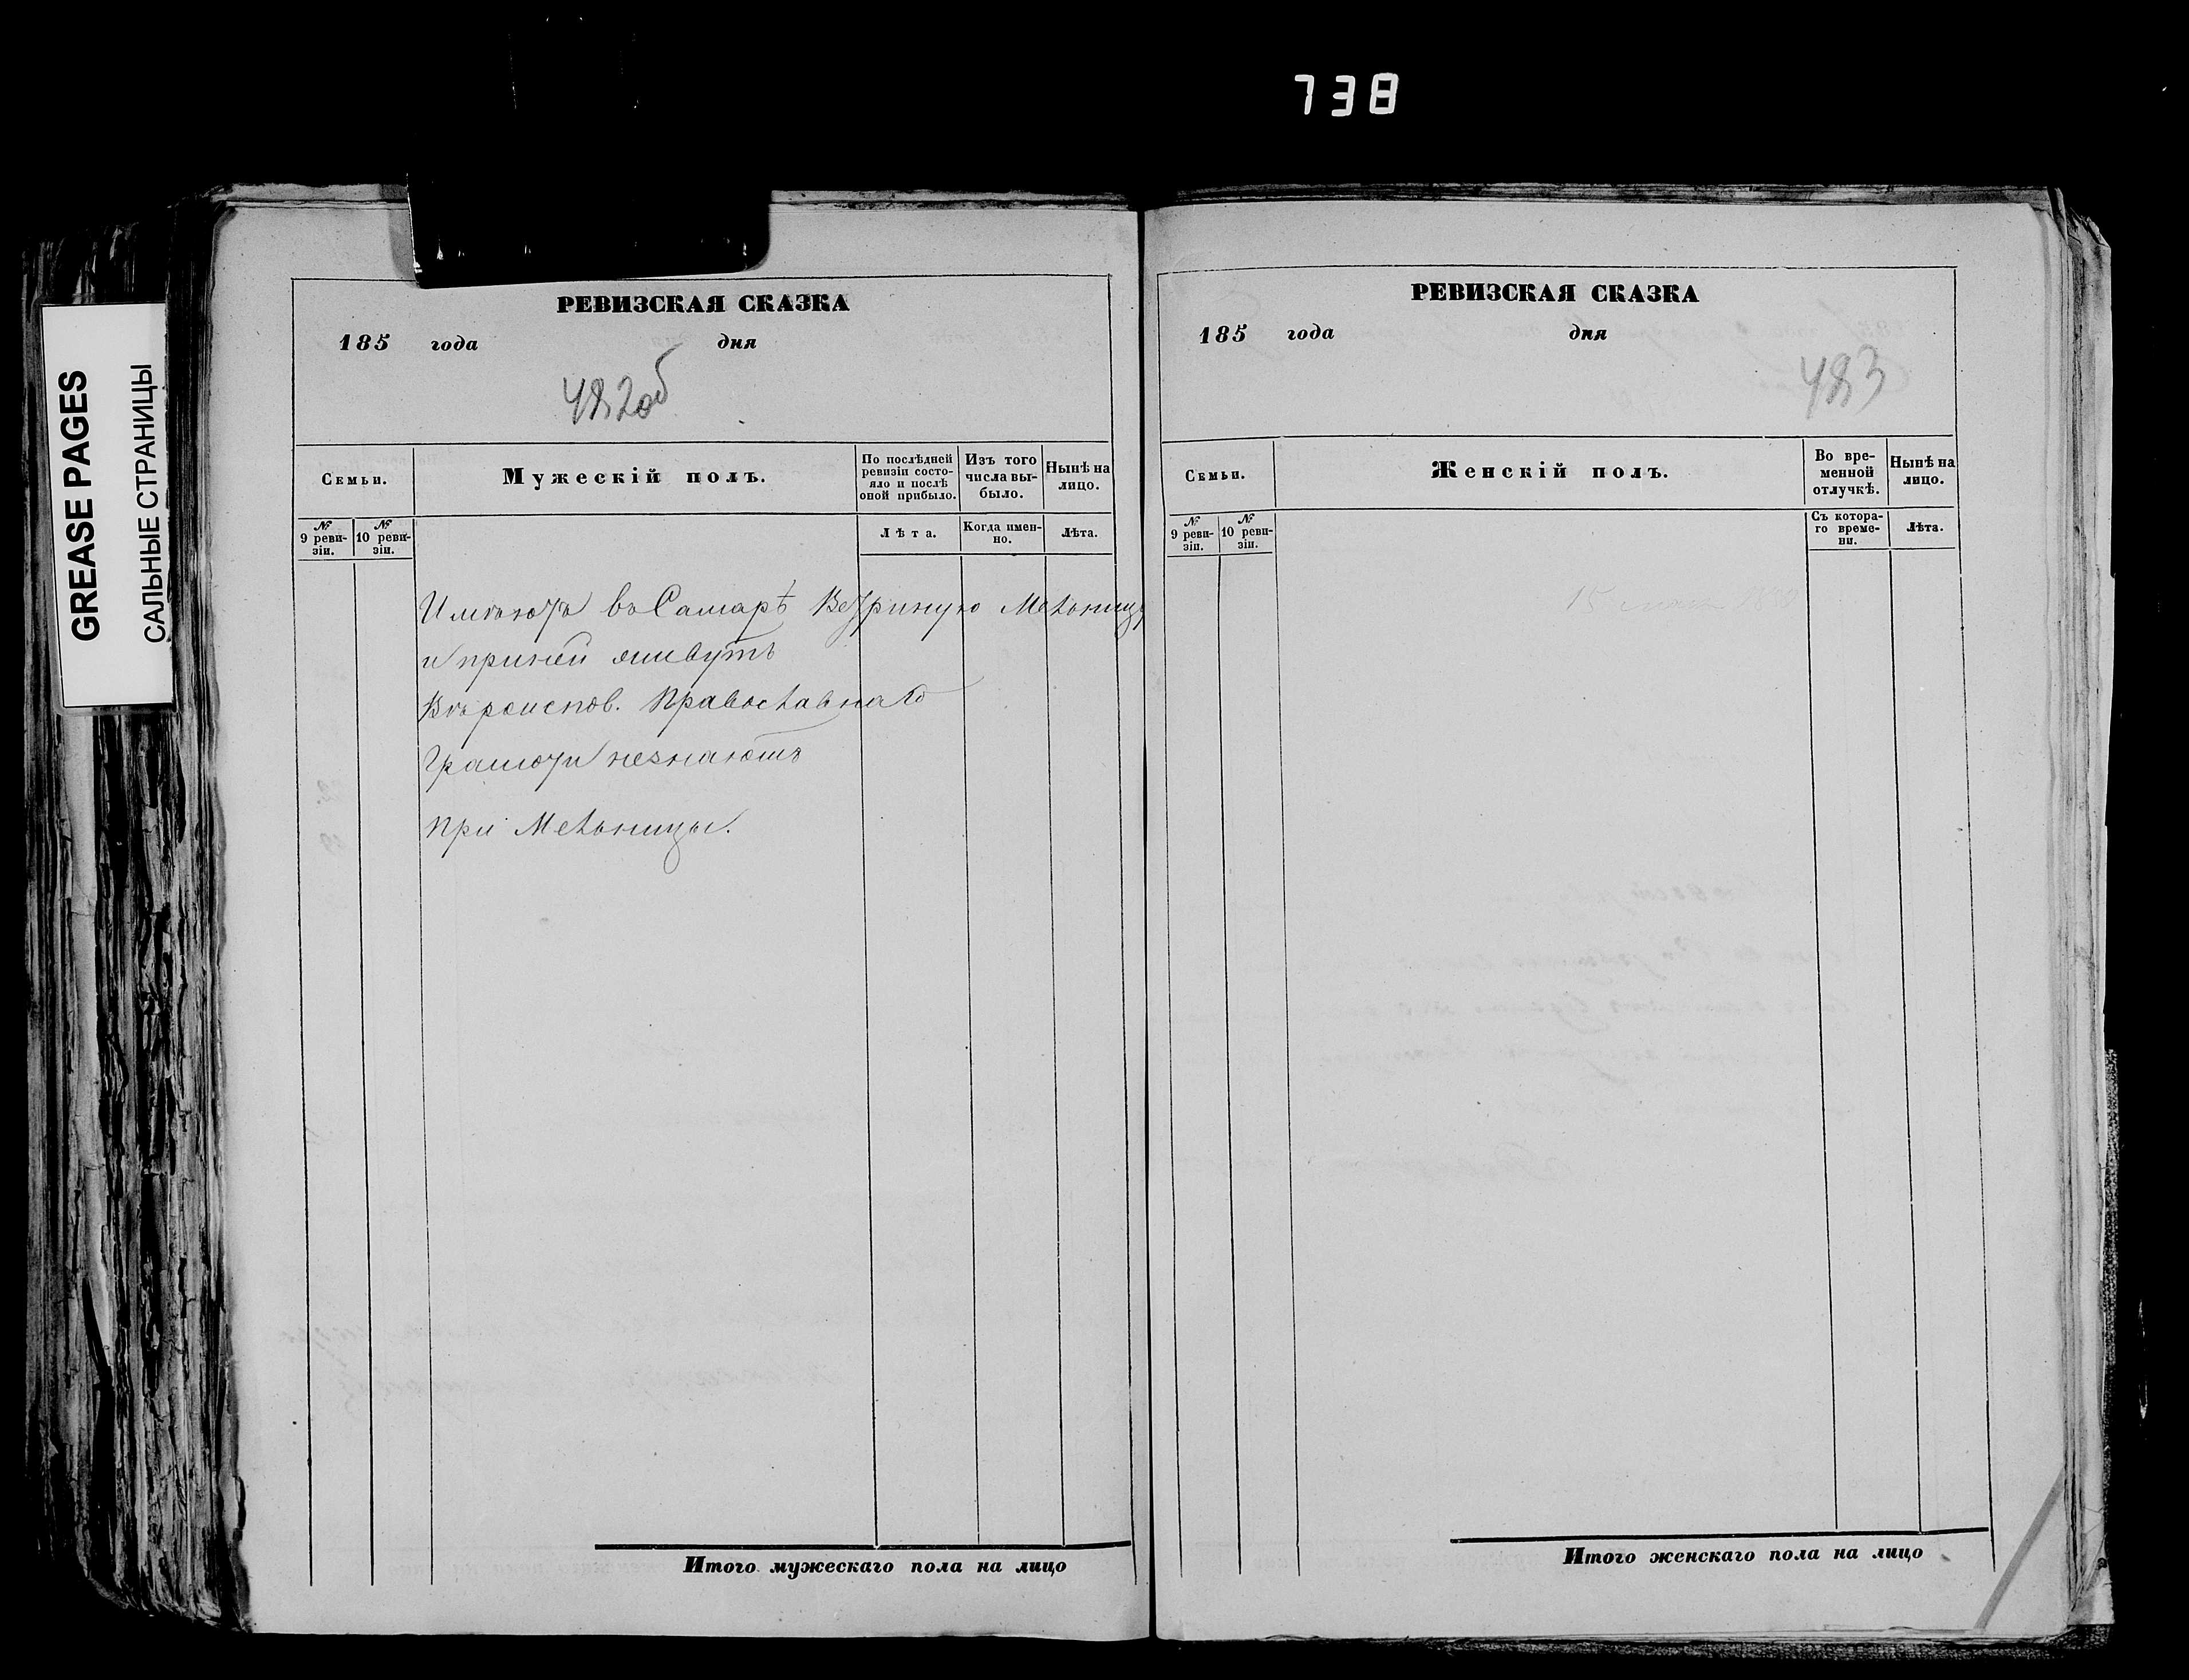 738
GREASE PAGES
САЛЬНЫЕ СТРАНИЦЫ
РЕВИЗСКАЯ СКАЗКА
185 года дня
482об
Семьи.
Мужескій полъ.
По послѣдней ревизіи состо-
яло и послѣ
оной прибыло.
Изъ того
числа вы-
было.
Нынѣ на
лицо.
№
9 реви-
зіи.
№
10 реви-
зіи.
Лѣта.
Когда имен-
но.
Лѣта.
Имѣютъ въ Самарѣ Ветриную Мельницу
и приней живутъ
Вѣроиспов. Православнаго
Грамоти незнаютъ
При Мельницы.
Итого мужескаго пола на лицо
РЕВИЗСКАЯ СКАЗКА
185 года дня
483
Семьи.
Женскій полъ.
Во вре-
менной
отлучкѣ.
Нынѣ на
лицо.
№
9 реви-
зіи.
№
10 реви-
зіи.
Съ котора-
го време-
ни.
Лѣта.
15
Итого женскаго пола на лицо